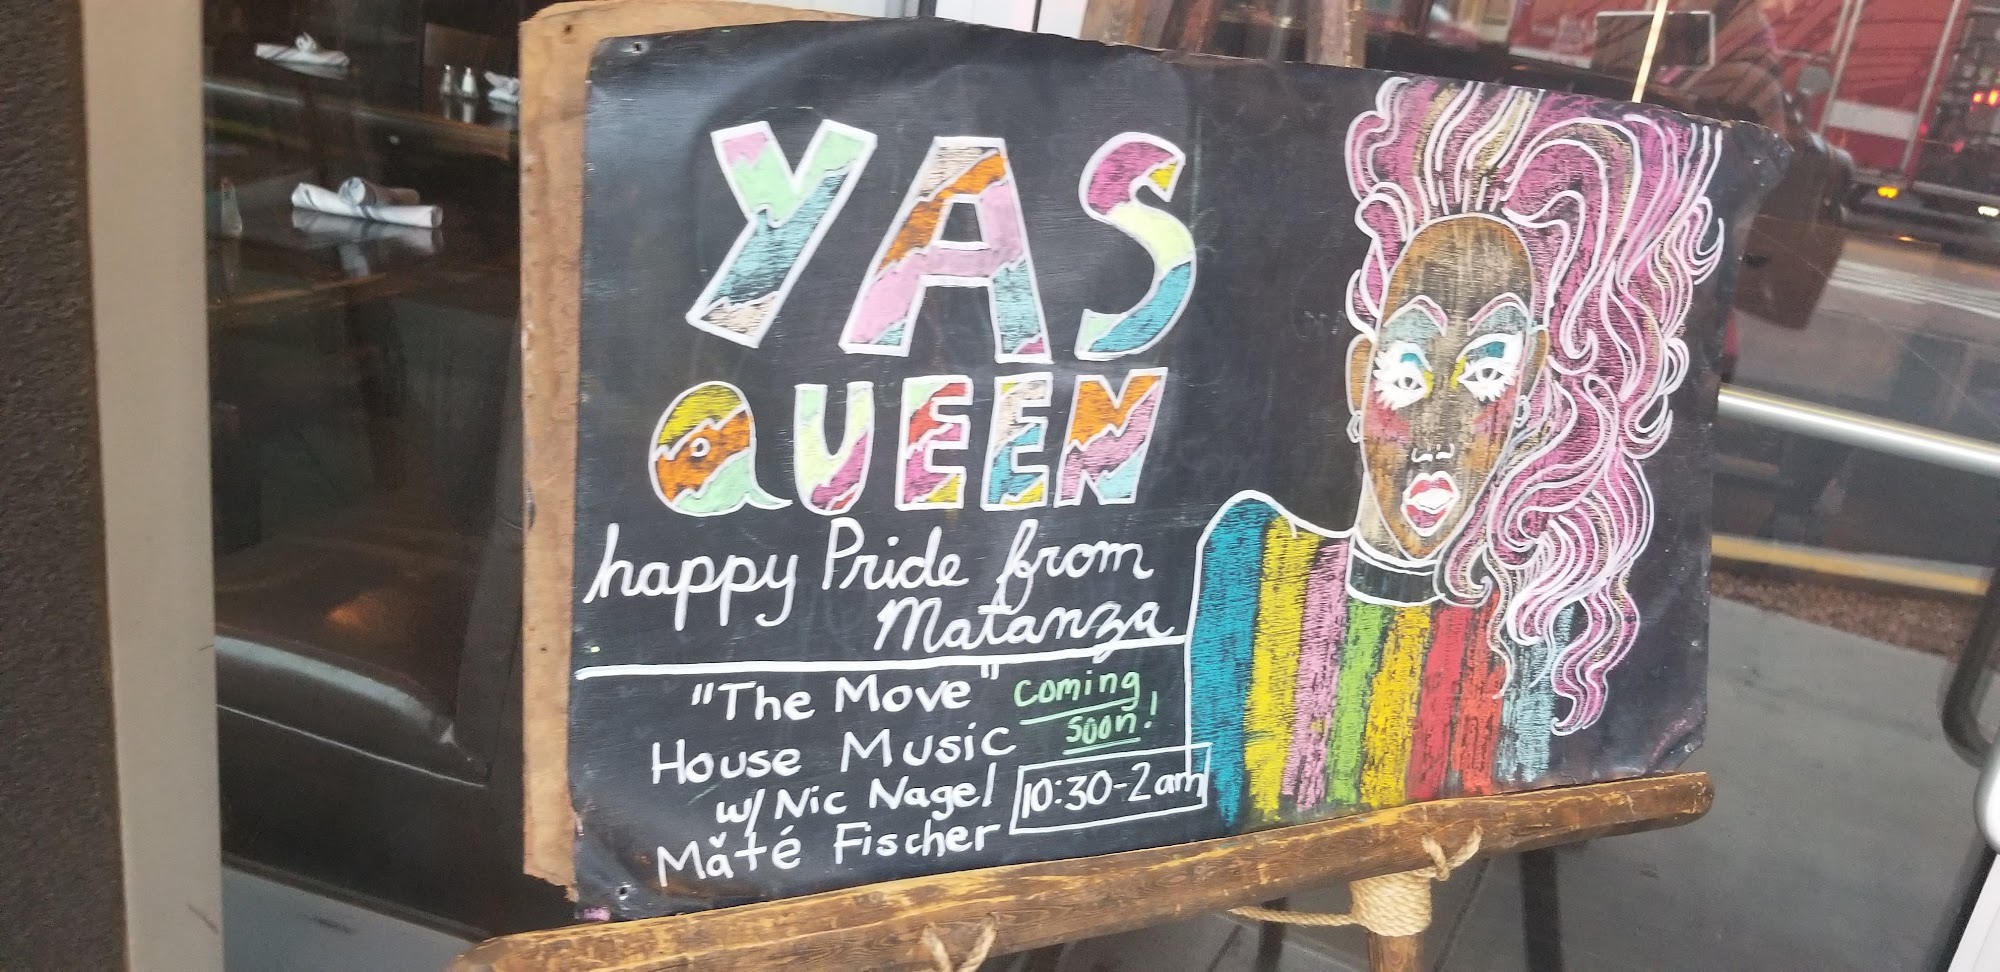 YAS
QUEEN
happy Pride from
Matanza
"The Move"
House Music
w/ Nic Nagel
Mǎté Fischer
coming
soon!
10:30-2am